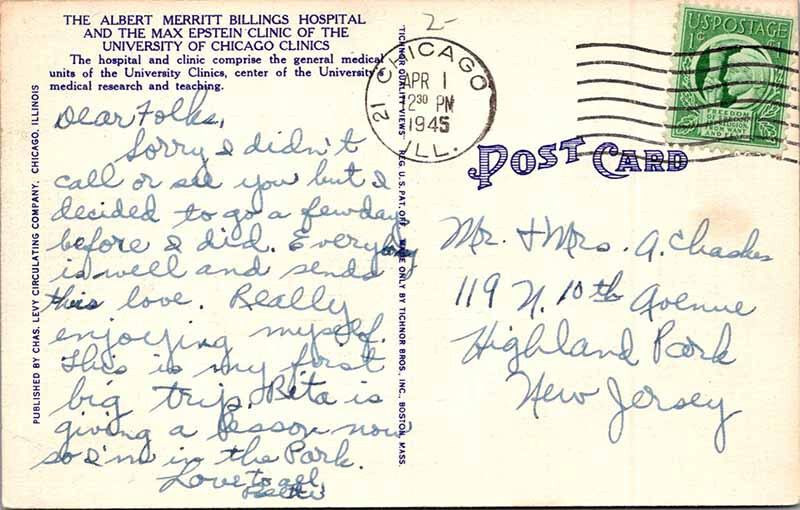 THE ALBERT MERRITT BILLINGS HOSPITAL
AND THE MAX EPSTEIN CLINIC OF THE
UNIVERSITY OF CHICAGO CLINICS
The hospital and clinic comprise the general medical
units of the University Clinics, center of the University
medical research and teaching.
Dear Folks,
Sorry I didn't
call or see you but I
decided to go a few days
before I did. Everybody
is well and sends
this love. Really
enjoying myself.
This is my first
big trip. Rita is
giving a lesson now
so I'm in the Park.
Love to all,
PUBLISHED BY CHAS. LEVY CIRCULATING COMPANY, CHICAGO, ILLINOIS
"TICHNOR QUALITY VIEWS" REG. U. S. PAT. OFF. MADE ONLY BY TICHNOR BROS., INC., BOSTON, MASS.
2-
CHICAGO
21
APR 1
12 30 PM
1945
ILL.
U.S. POSTAGE
1¢
FREEDOM
OF SPEECH AND
RELIGION
FROM WANT
AND FEAR
POST CARD
Mr. + Mrs. A. Chashes
119 N. 10th Avenue
Highland Park
New Jersey